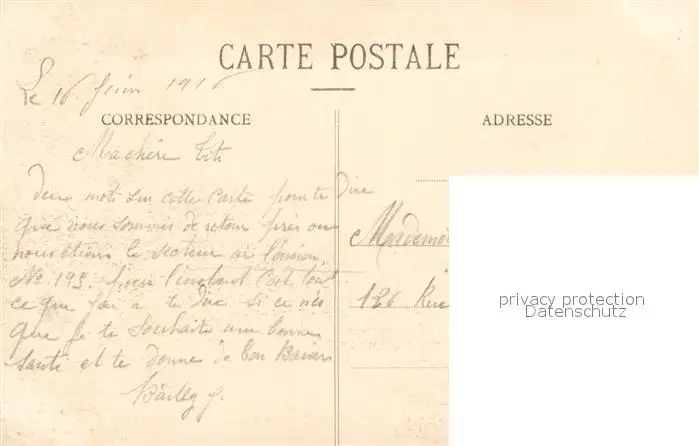 CARTE POSTALE
Le 16 Juin 1916
CORRESPONDANCE
ADRESSE
Ma chère Titi
Deux mots sur cette Carte pour te Dire
que nous sommes de retour près où
nous étions le secteur
No 195. Pour l'instant C'est tout
ce que j'ai a te Dire si ce n'es
que je te Souhaite une bonne
santé et te donne de bon Baisers
Mademoi
126 Rue
privacy protection
Datenschutz